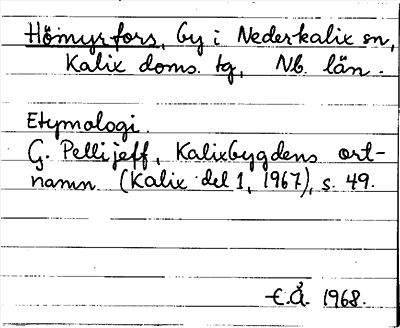 Hömyrfors, by i Nederkalix sn,
Kalix doms. tg, Nb. län.
Etymologi.
G. Pellijeff, Kalixbygdens ort-
namn. (Kalix del 1, 1967), s. 49.
E.Å. 1968.